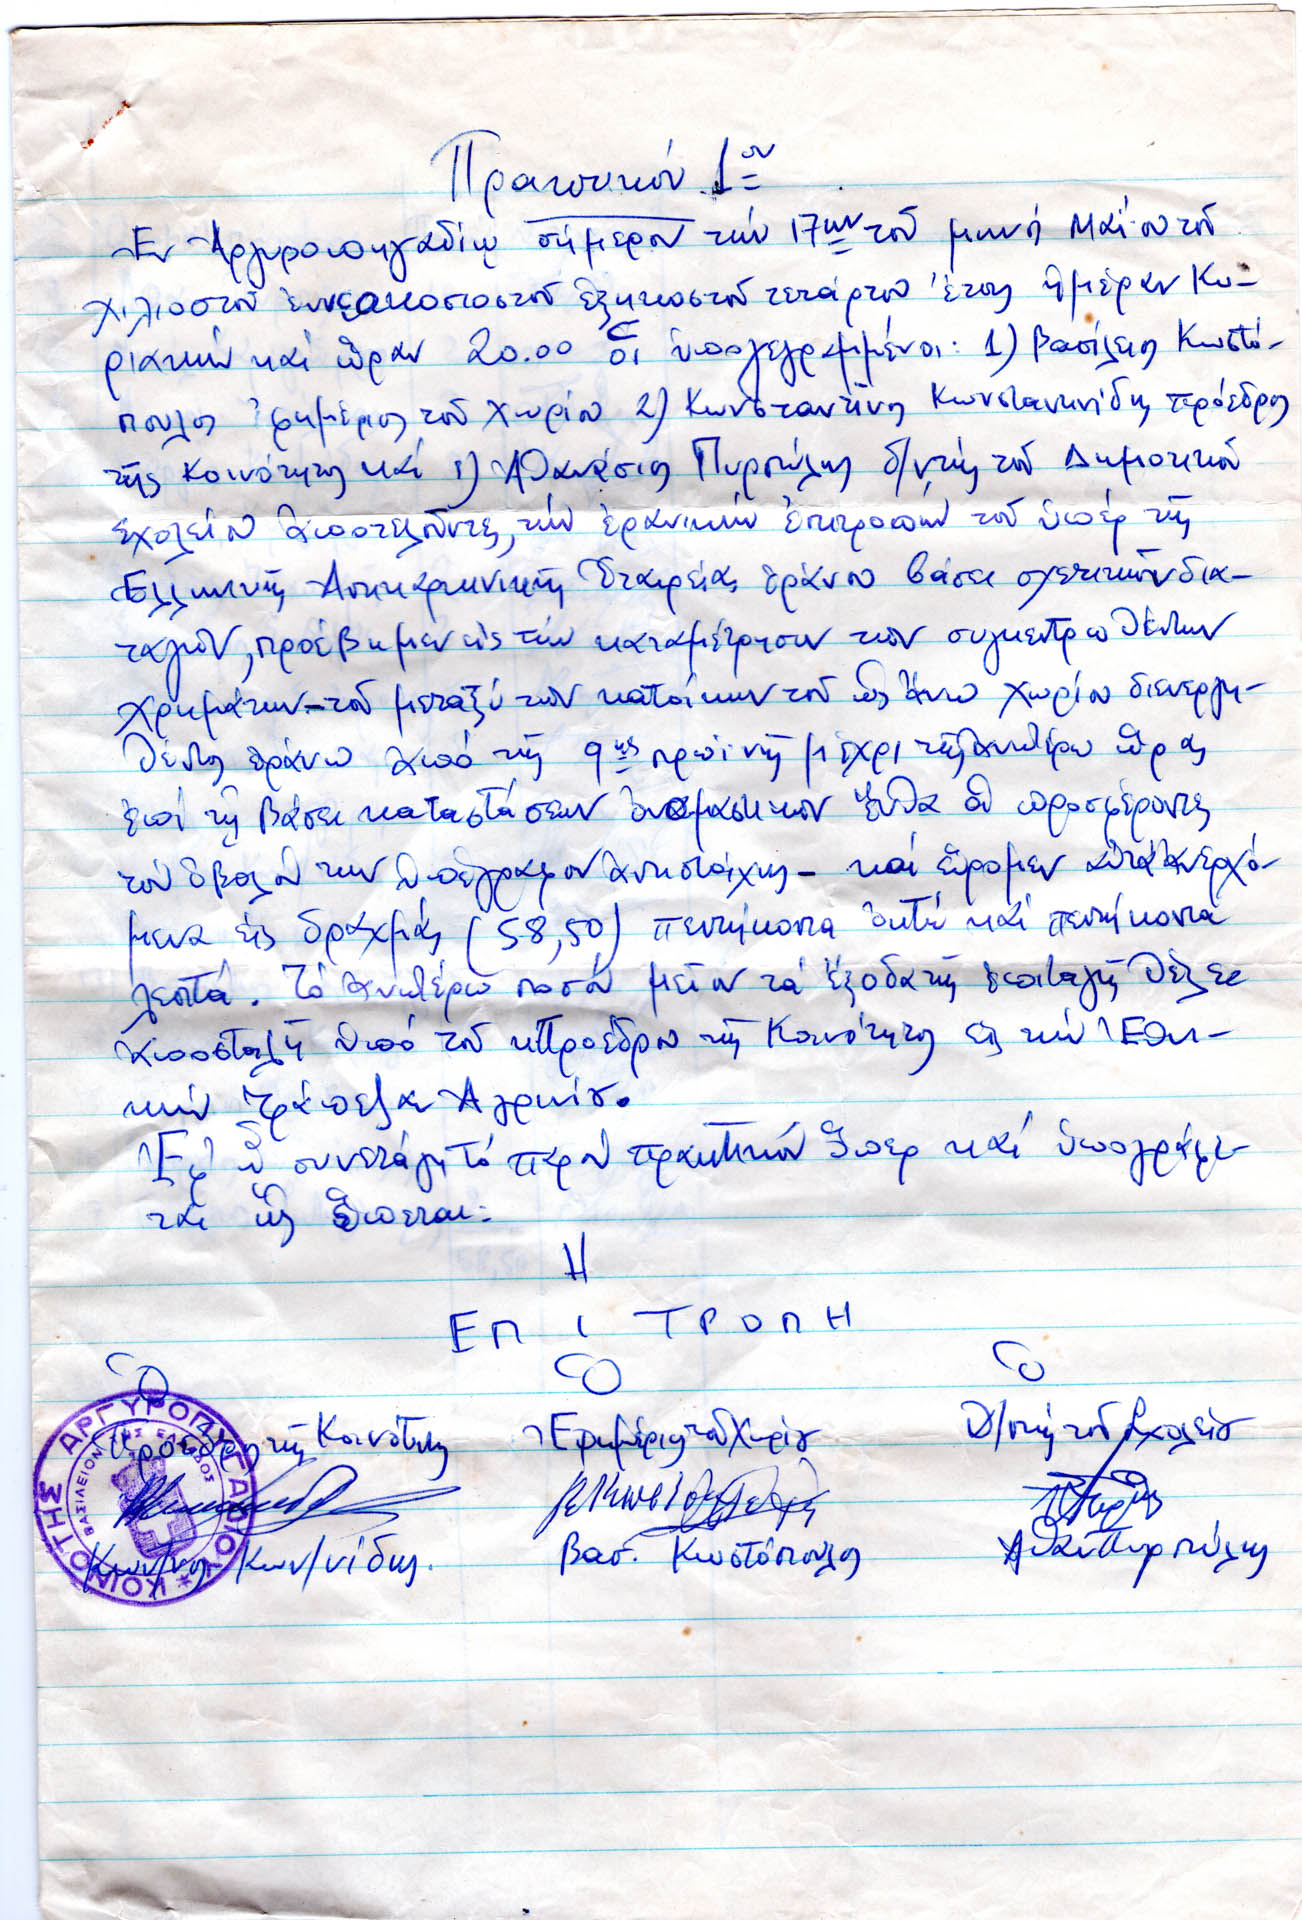 Πρακτικόν 1ον
Ἐν Ἀργυροπηγαδίῳ σήμερον τήν 17ην τοῦ μηνός Μαΐου τοῦ
χιλιοστοῦ ἐννεακοσιοστοῦ ἑξηκοστοῦ τετάρτου ἔτους ἡμέραν Κυ-
ριακήν καί ὥραν 20.00 οἱ ὑπογεγραμμένοι: 1) Βασίλειος Κωστό-
πουλος Ἐφημέριος τοῦ χωρίου 2) Κωνσταντῖνος Κωνσταντινίδης πρόεδρος
τῆς Κοινότητος καί 3) Ἀθανάσιος Πυρπύλης δ/ντής τοῦ Δημοτικοῦ
Σχολείου ἀποτελοῦντες τήν ἐρανικήν ἐπιτροπήν τοῦ ὑπέρ τῆς
Ἑλληνικῆς Ἀντικαρκινικῆς Ἑταιρείας ἐράνου βάσει σχετικῶν δια-
ταγῶν, προέβημεν εἰς τήν καταμέτρησιν των συγκεντρωθέντων
χρημάτων – τοῦ μεταξύ των κατοίκων τοῦ ὡς ἄνω χωρίου διενεργη-
θέντος ἐράνου ἀπό τῆς 9ης πρωϊνῆς μέχρι τῆς ἀνωτέρω ὥρας
ἐπί τῇ βάσει καταστάσεων ὀνομαστικῶν ἔνθα οἱ προσφέροντες
τόν ὀβολόν των ὑπέγραφον ἀντιστοίχως – καί εὕρομεν αὐτά ἀνερχό-
μενα εἰς δραχμάς (58,50) πεντήκοντα ὀκτώ καί πεντήκοντα
λεπτά. Τό ἀνωτέρω ποσόν μεῖον τά ἔξοδα τῆς ἐπιταγῆς θέλει
ἀποσταλῆ ὑπό τοῦ κ. Προέδρου τῆς Κοινότητος εἰς τήν Ἐθνι-
κήν Τράπεζαν Ἀγρινίου.
Ἐφ' ᾧ συνετάγη τό παρόν πρακτικόν ὅπερ καί ὑπογράφε-
ται ὡς ἕπεται:
Η
ΕΠΙΤΡΟΠΗ
Ὁ Ὁ Ὁ
Πρόεδρος τῆς Κοινότητος Ἐφημέριος τοῦ Χωρίου Δ/ντής τοῦ Σχολείου
Κων/νος Κων/νίδης. Βασ. Κωστόπουλος Ἀθαν. Πυρπύλης
ΚΟΙΝΟΤΗΣ ΑΡΓΥΡΟΠΗΓΑΔΙΟΥ
ΒΑΣΙΛΕΙΟΝ ΤΗΣ ΕΛΛΑΔΟΣ